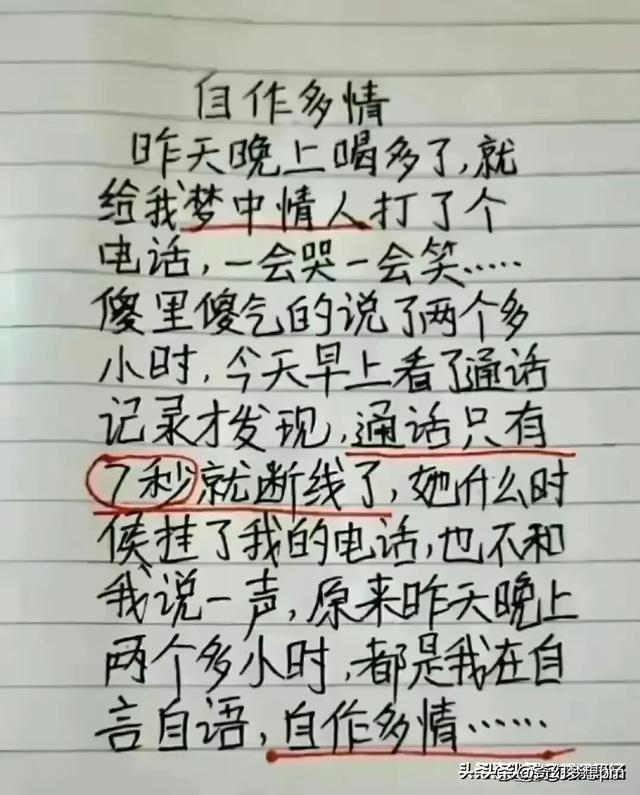 自作多情
昨天晚上喝多了,就
给我梦中情人打了个
电话,一会哭一会笑……
傻里傻气的说了两个多
小时,今天早上看了通话
记录才发现,通话只有
7秒就断线了,她什么时
侯挂了我的电话,也不和
我说一声,原来昨天晚上
两个多小时,都是我在自
言自语,自作多情……